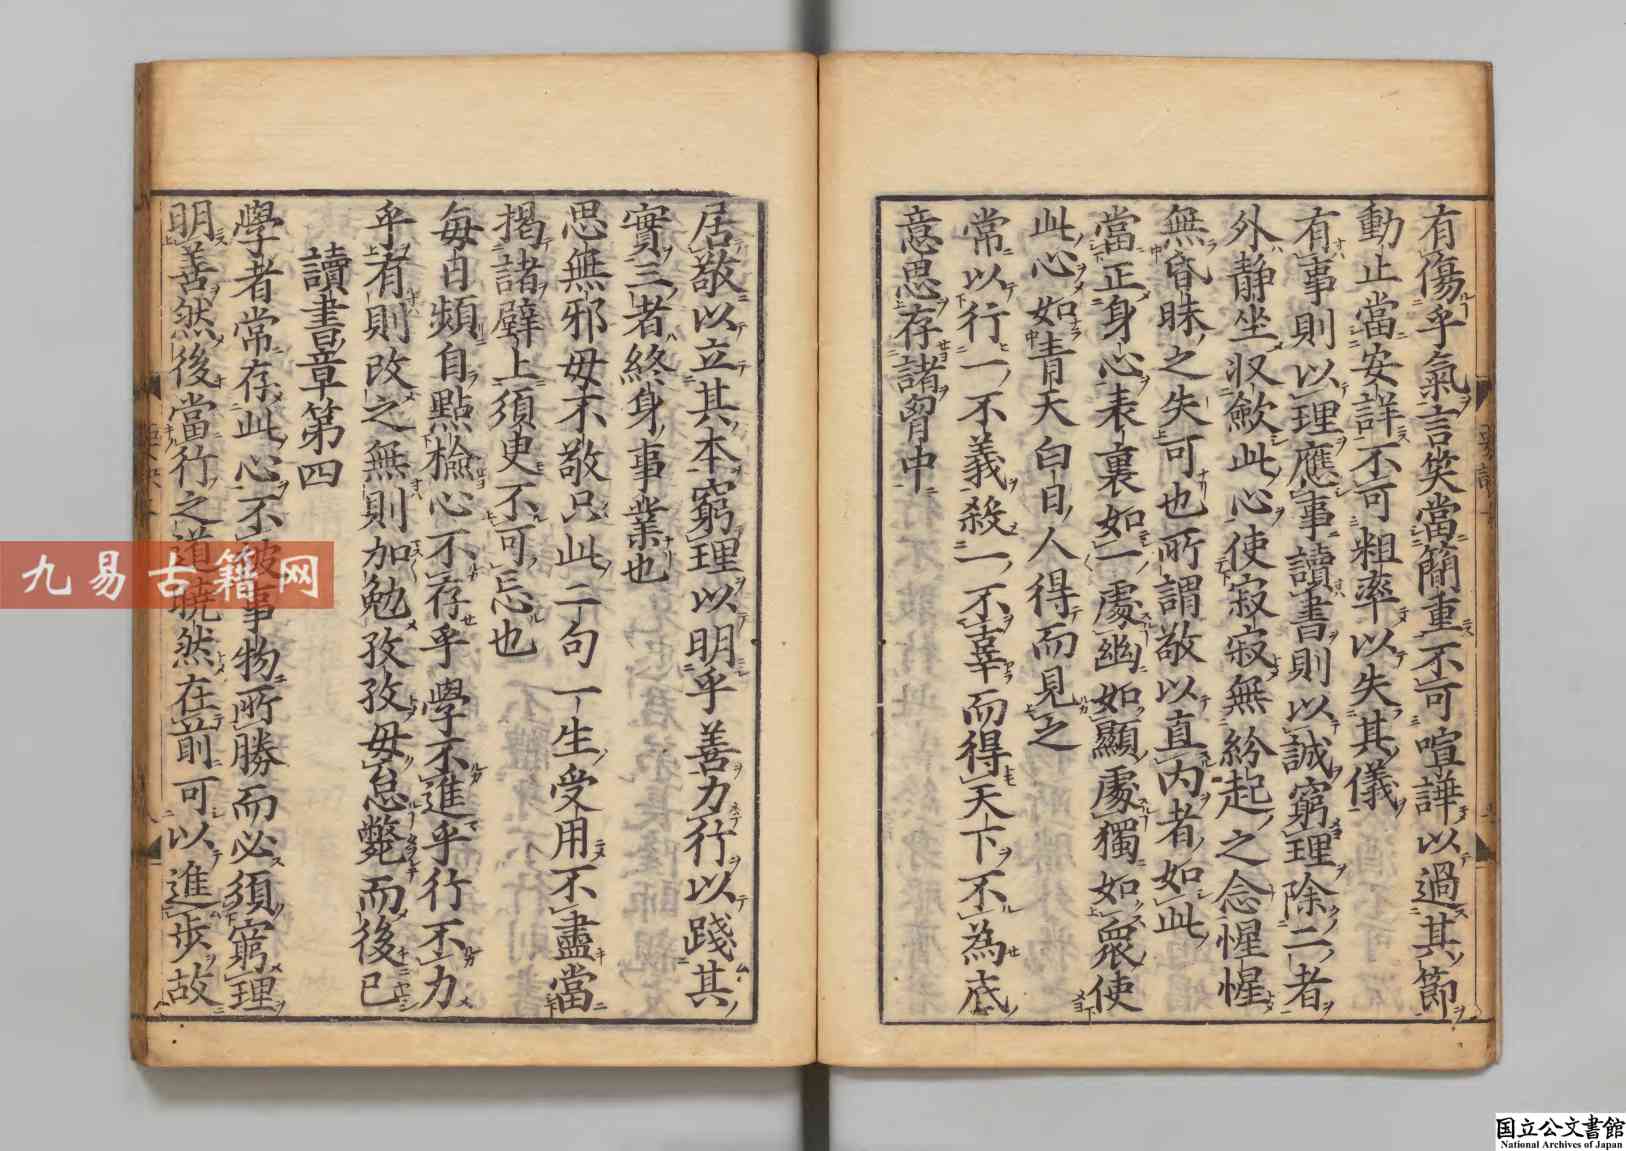 有傷乎氣言笑當簡重不可喧譁以過其節
動止當安詳不可粗率以失其儀
有事則以理應事讀書則以誠窮理除二者
外靜坐収斂此心使寂寂無紛起之念惺惺
無昏昧之失可也所謂敬以直內者如此
當正身心表裏如一處幽如顯處獨如衆使
此心如青天白日人得而見之
常以行一不義殺一不辜而得天下不為底
意思存諸胷中
居敬以立其本窮理以明乎善力行以踐其
實三者終身事業也
思無邪毋不敬只此二句一生受用不盡當
揭諸壁上須臾不可忘也
每日頻自點檢心不存乎學不進乎行不力
乎有則改之無則加勉孜孜毋怠斃而後已
讀書章第四
學者常存此心不被事物所勝而必須窮理
明善然後當行之道曉然在前可以進步故
九易古籍网
国立公文書館
National Archives of Japan